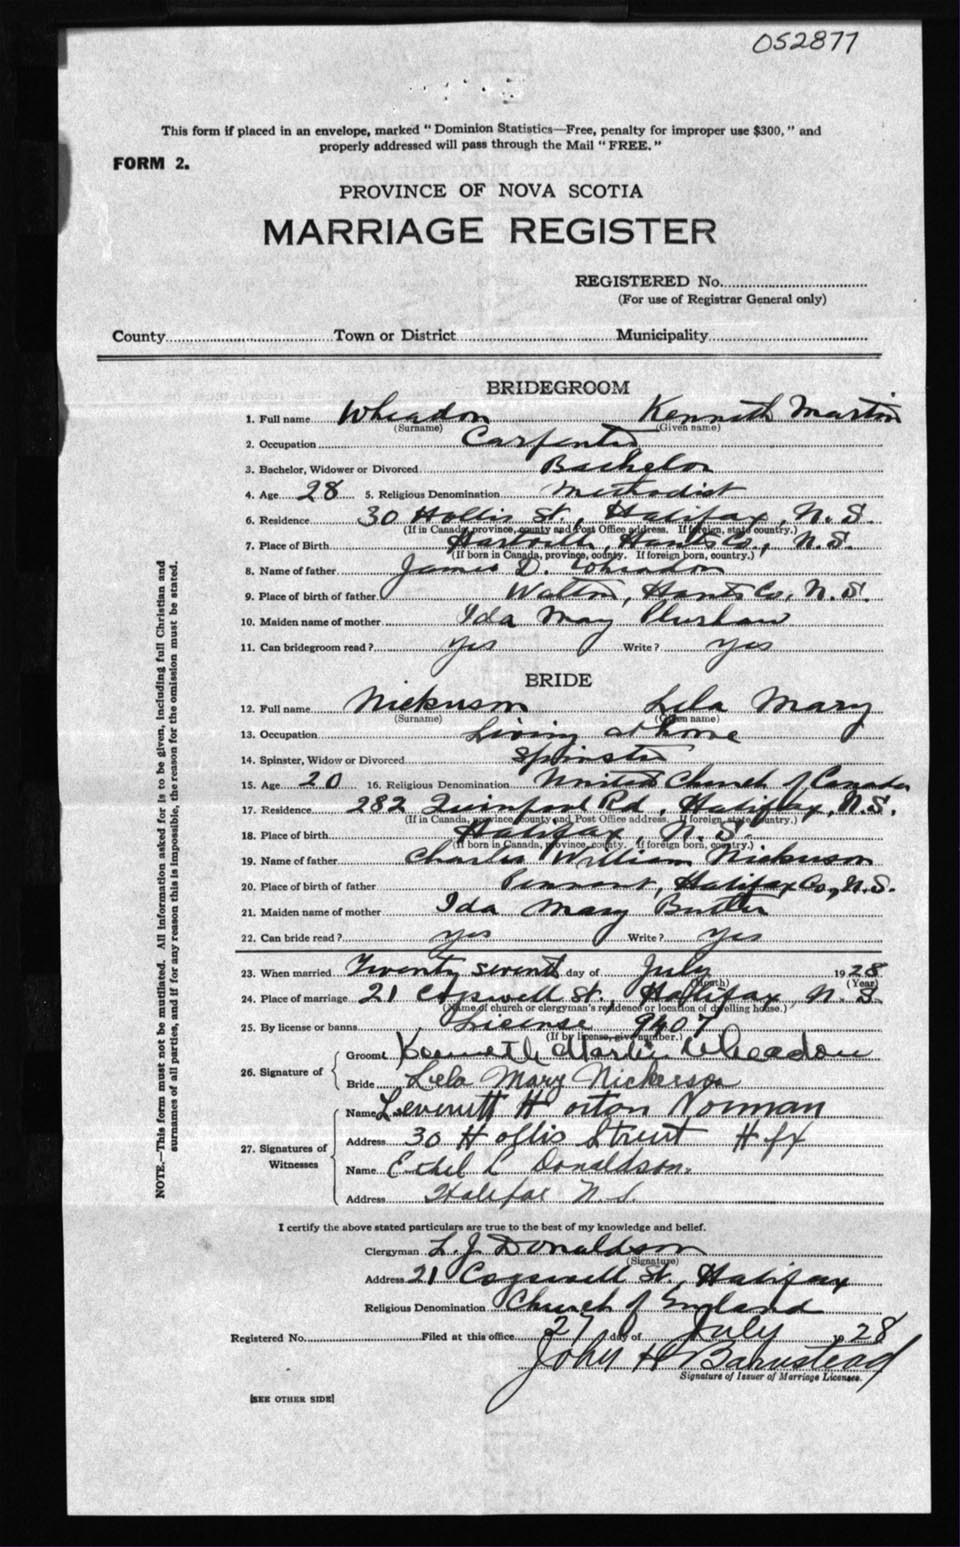 052877
This form if placed in an envelope, marked "Dominion Statistics—Free, penalty for improper use $300," and
properly addressed will pass through the Mail "FREE."
FORM 2.
PROVINCE OF NOVA SCOTIA
MARRIAGE REGISTER
REGISTERED No.
(For use of Registrar General only)
County Town or District Municipality
BRIDEGROOM
1. Full name Wheadon Kenneth Martin
(Surname) (Given name)
2. Occupation Carpenter
3. Bachelor, Widower or Divorced Bachelor
4. Age 28 5. Religious Denomination Methodist
6. Residence 30 Hollis St., Halifax, N.S.
(If in Canada, province, county and Post Office address. If foreign, state country.)
7. Place of Birth Hants Co., N.S.
(If born in Canada, province, county. If foreign born, country.)
8. Name of father James D. Wheadon
9. Place of birth of father Walton, Hants Co., N.S.
10. Maiden name of mother Ida May
11. Can bridegroom read? yes Write? yes
BRIDE
12. Full name Nickerson Lela Mary
(Surname) (Given name)
13. Occupation Living at home
14. Spinster, Widow or Divorced Spinster
15. Age 20 16. Religious Denomination United Church of Canada
17. Residence 282 Quinpool Rd, Halifax, N.S.
(If in Canada, province, county and Post Office address. If foreign, state country.)
18. Place of birth Halifax, N.S.
(If born in Canada, province, county. If foreign born, country.)
19. Name of father Charles William Nickerson
20. Place of birth of father Pennant, Halifax Co., N.S.
21. Maiden name of mother Ida Mary Butler
22. Can bride read? yes Write? yes
23. When married Twenty seventh day of July 1928
(Month) (Year)
24. Place of marriage 21 Cogswell St., Halifax N.S.
(Name of church or clergyman's residence or location of dwelling house.)
25. By license or banns License 9407
(If by license, give number.)
26. Signature of
Groom Kenneth Martin Wheadon
Bride Lela Mary Nickerson
27. Signatures of Witnesses
Name Leverett Horton Norman
Address 30 Hollis Street Hfx
Name Ethel L Donaldson.
Address Halifax N.S.
I certify the above stated particulars are true to the best of my knowledge and belief.
Clergyman L. J. Donaldson
(Signature)
Address 21 Cogswell St., Halifax
Religious Denomination Church of England
Registered No. Filed at this office 27 day of July 28
John H Barnstead
Signature of Issuer of Marriage Licenses.
[SEE OTHER SIDE]
NOTE.—This form must not be mutilated. All information asked for is to be given, including full Christian and
surnames of all parties, and if for any reason this is impossible, the reason for the omission must be stated.